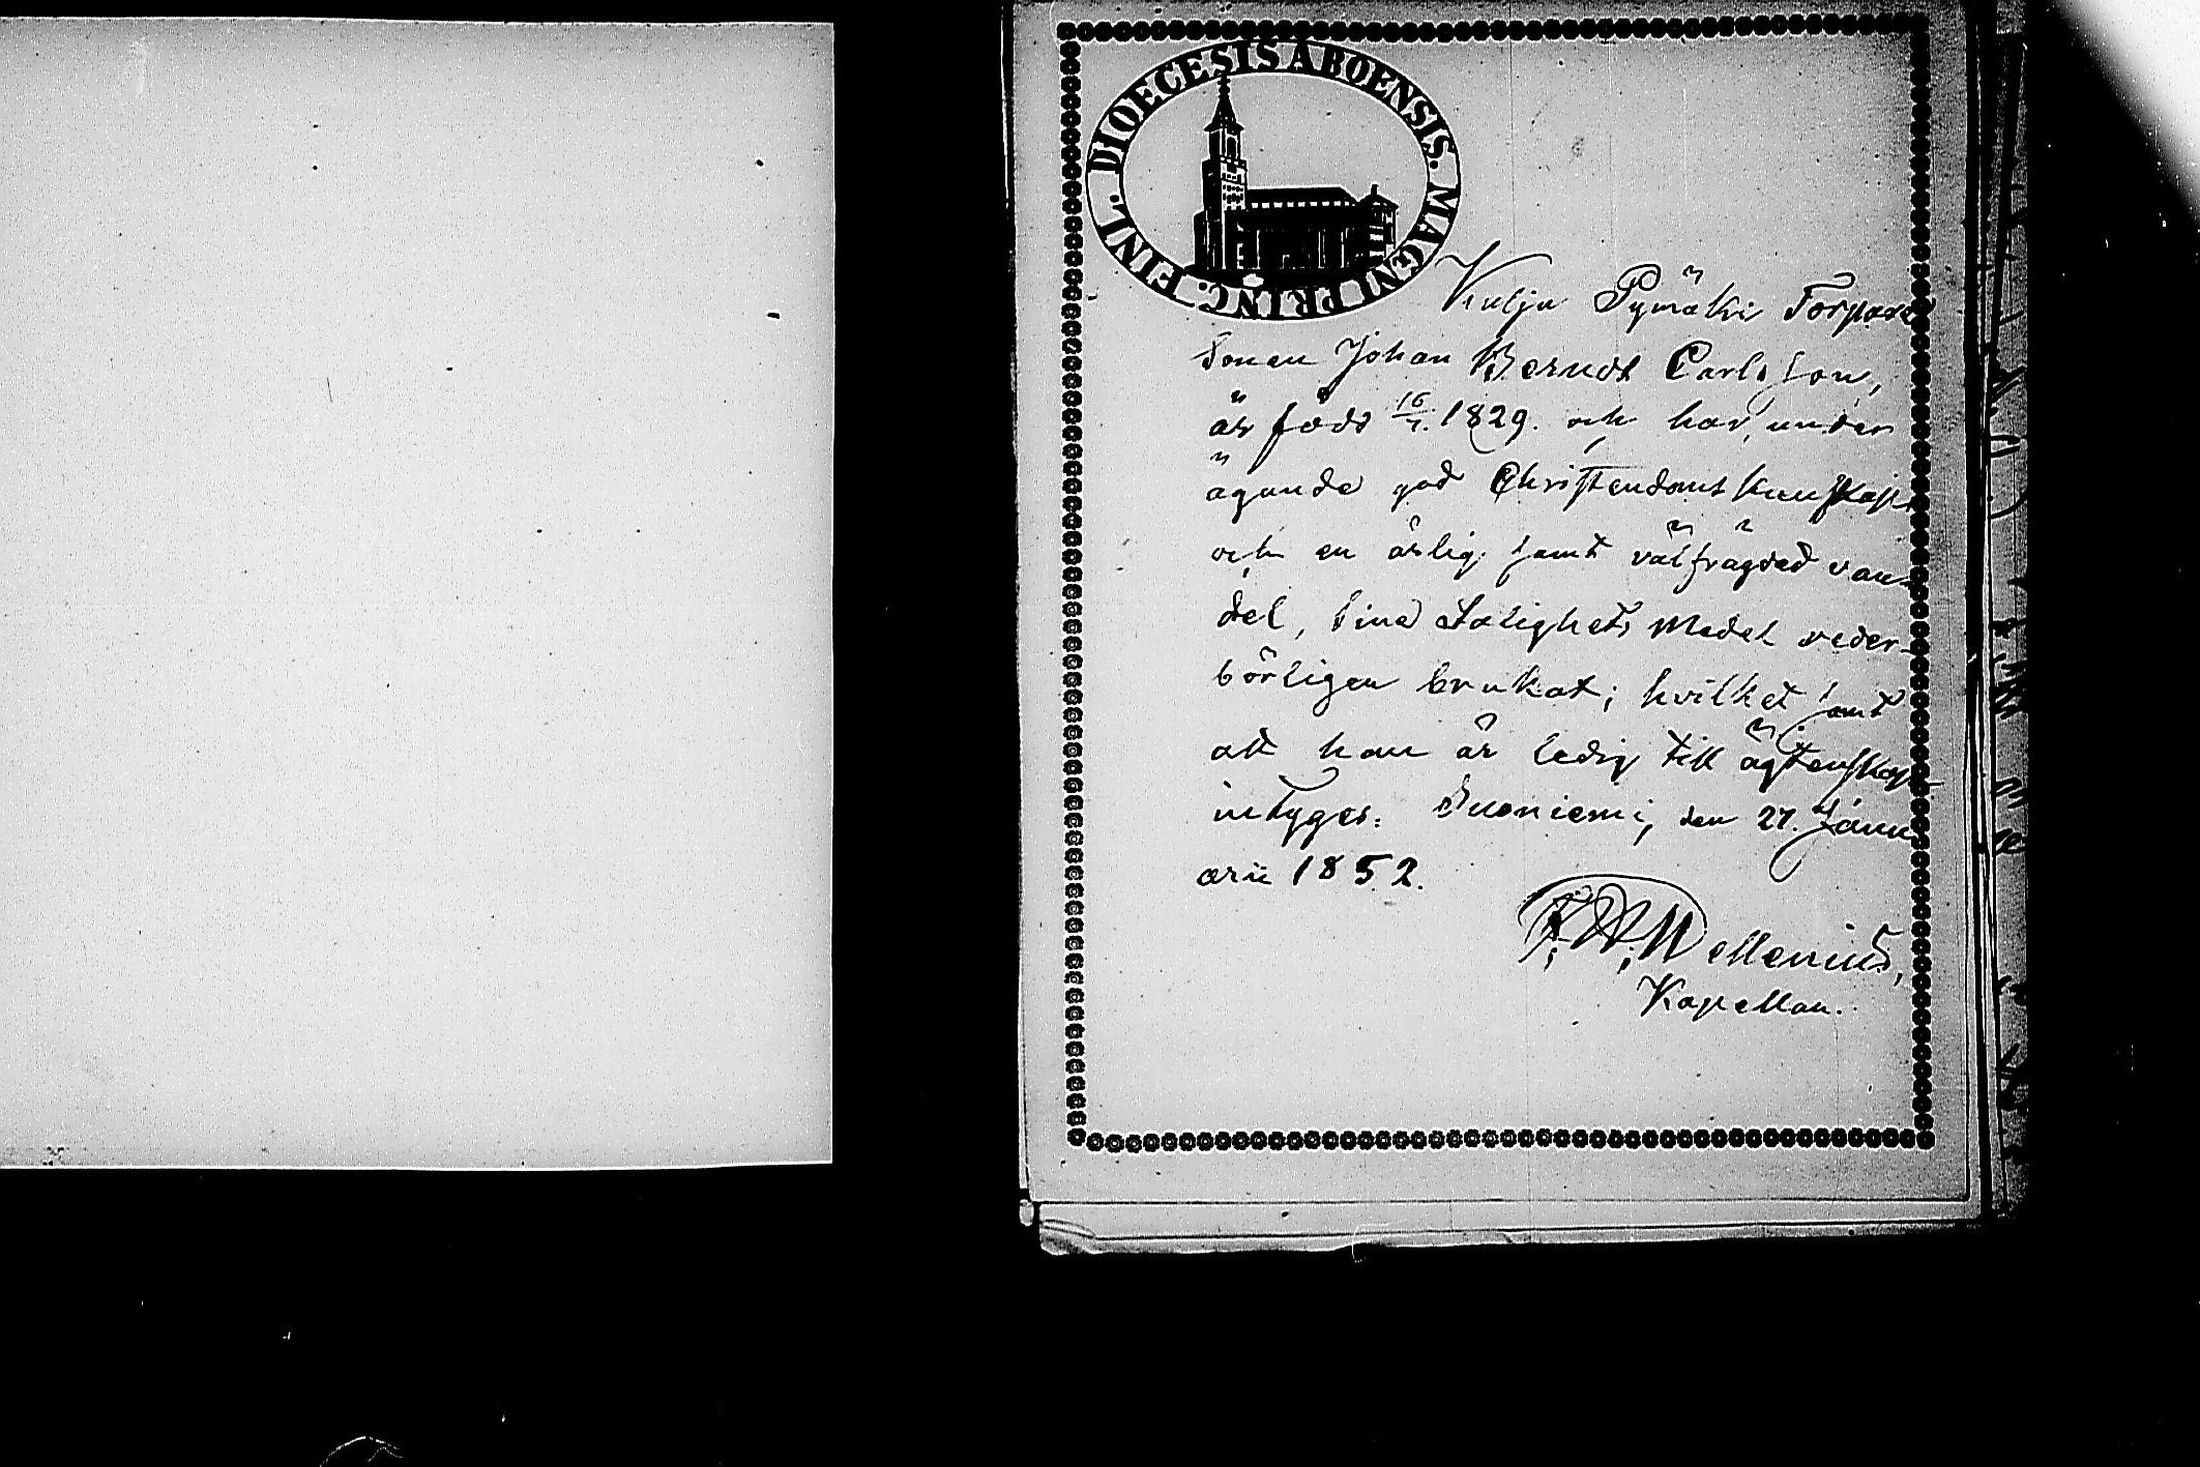 DIOECESIS ABOENSIS. MAGNI PRINC. FINL.
Kulju Pymäki Torpare
Sonen Johan Berndt Carlsson,
är född 16/7. 1829. och har, under
ägande god Christendoms kunskap
och en ärlig samt välfrägdad van-
del, sina Salighets Medel veder-
börligen brukat; hvilket samt
att han är ledig till ägtenskap
intygges: Suoniemi, den 27. Janu-
arii 1852.
Mellenius,
Kapellan.